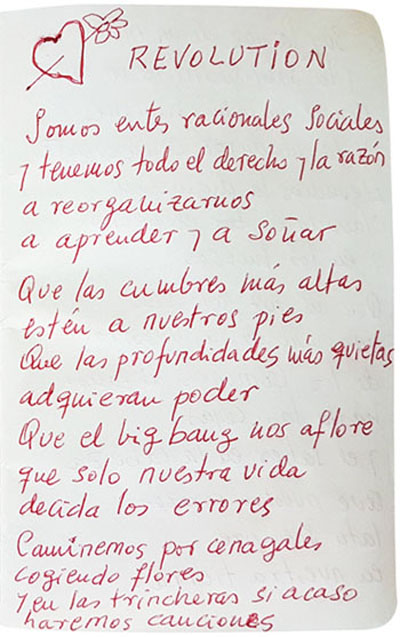 REVOLUTION
Somos entes racionales sociales
y tenemos todo el derecho y la razón
a reorganizarnos
a aprender y a soñar
Que las cumbres más altas
estén a nuestros pies
Que las profundidades más quietas
adquieran poder
Que el big bang nos aflore
que solo nuestra vida
decida los errores
Caminemos por cenagales
cogiendo flores
y en las trincheras si acaso
haremos canciones